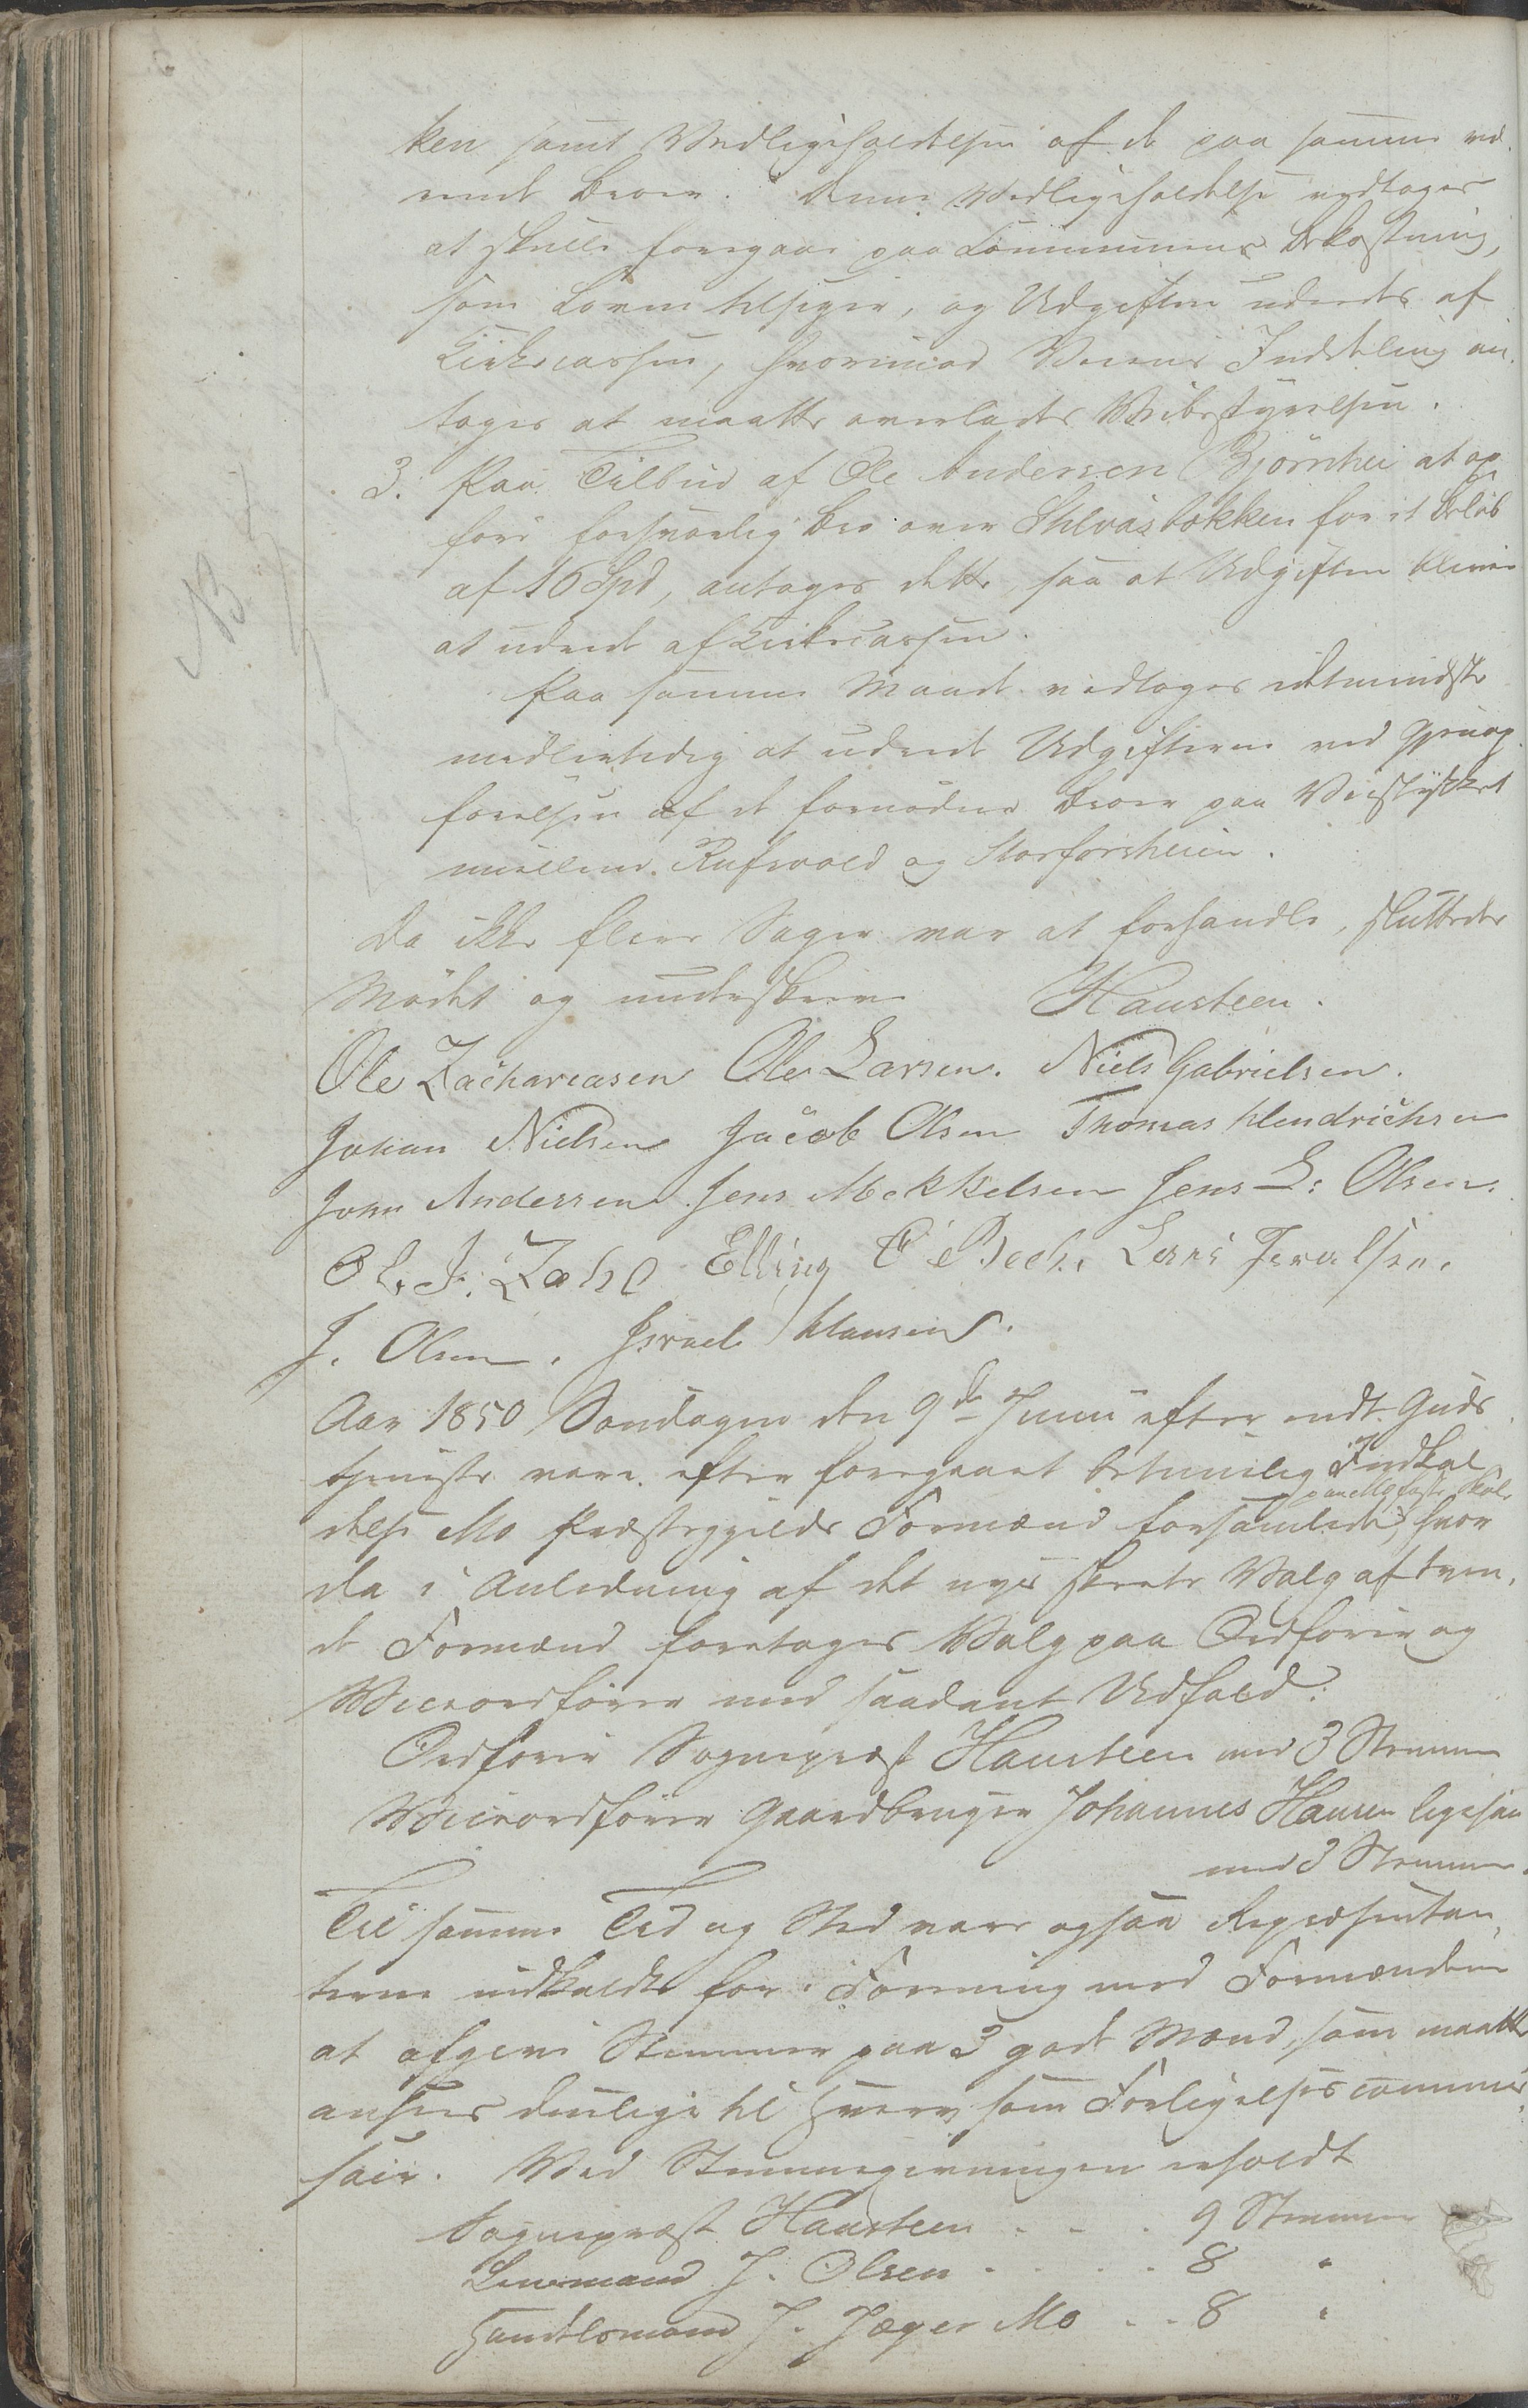 ken samt Vedligeholdelsen af de paa samme væ
rende Broer. Denne Vedligeholdelse vedtoges
at skulle foregaae paa Communens Bekostning,
som Loven tilsiger, og Udgiften udredes af
Kirkecassen, hvorimod Veiens Inddeling an
toges at maatte overlades Veibestyrelsen.
3. Paa Tilbud af Ole Andersen Bjørnhei at op
føre forsvarlig Bro over Shlvasbækken for et Beløb
af 16 Spd, antoges dette, saa at Udgiften bliver
at udrede af Kirkecassen.
Paa samme Maade vedtoges idetmindste
midlertidig at udrede Udgifterne ved Gjenop
førelsen af de fornødne Broer paa Veistykket
mellem Rufsvold og Storforsheien.
Da ikke flere Sager var at forhandle, sluttedes
Mødet og underskreven Hansteen.
Ole Zachariasen Ole Larsen. Niels Gabrielsen.
Johan Nielsen Jacob Olsen Thomas Hendrichsen
John Andersen. Jens Mekkelsen Jens L: Olsen.
O L. J. Zahl Elling C Bech. Lars Iversen.
J. Olsen. Israel Klausen.
Aar 1850 Søndagen den 9de Juni efter endt Guds
tjeneste vare efter foregaaet betimelig Indkal
paa Mo faste Skole
delse Mo Præstegjelds Formænd forsamlede, hvor
da i Anledning af det nye skeete Valg af tven
de Formænd foretoges Valg paa Ordfører og
Viceordfører med saadant Udfald:
Ordfører Sognepræst Hansteen med 3 Stemmer
Viceordfører Gaardbruger Johannes Hansen ligesaa
med 3 Stemmer.
Til samme Tid og Sted vare ogsaa Repræsentan
terne indkaldte for i Forening med Formændene
at afgive Stemmer paa 3 gode Mænd, som maatte
ansees duelige til Hverv som Forligelsescommis
sair. Ved Stemmegivningen erholdt
Sognepræst Hansteen . . . 9 Stemmer
Lensmand J. Olsen . . . . 8 "
Handelsmand J. Jæger Mo . . 8 "